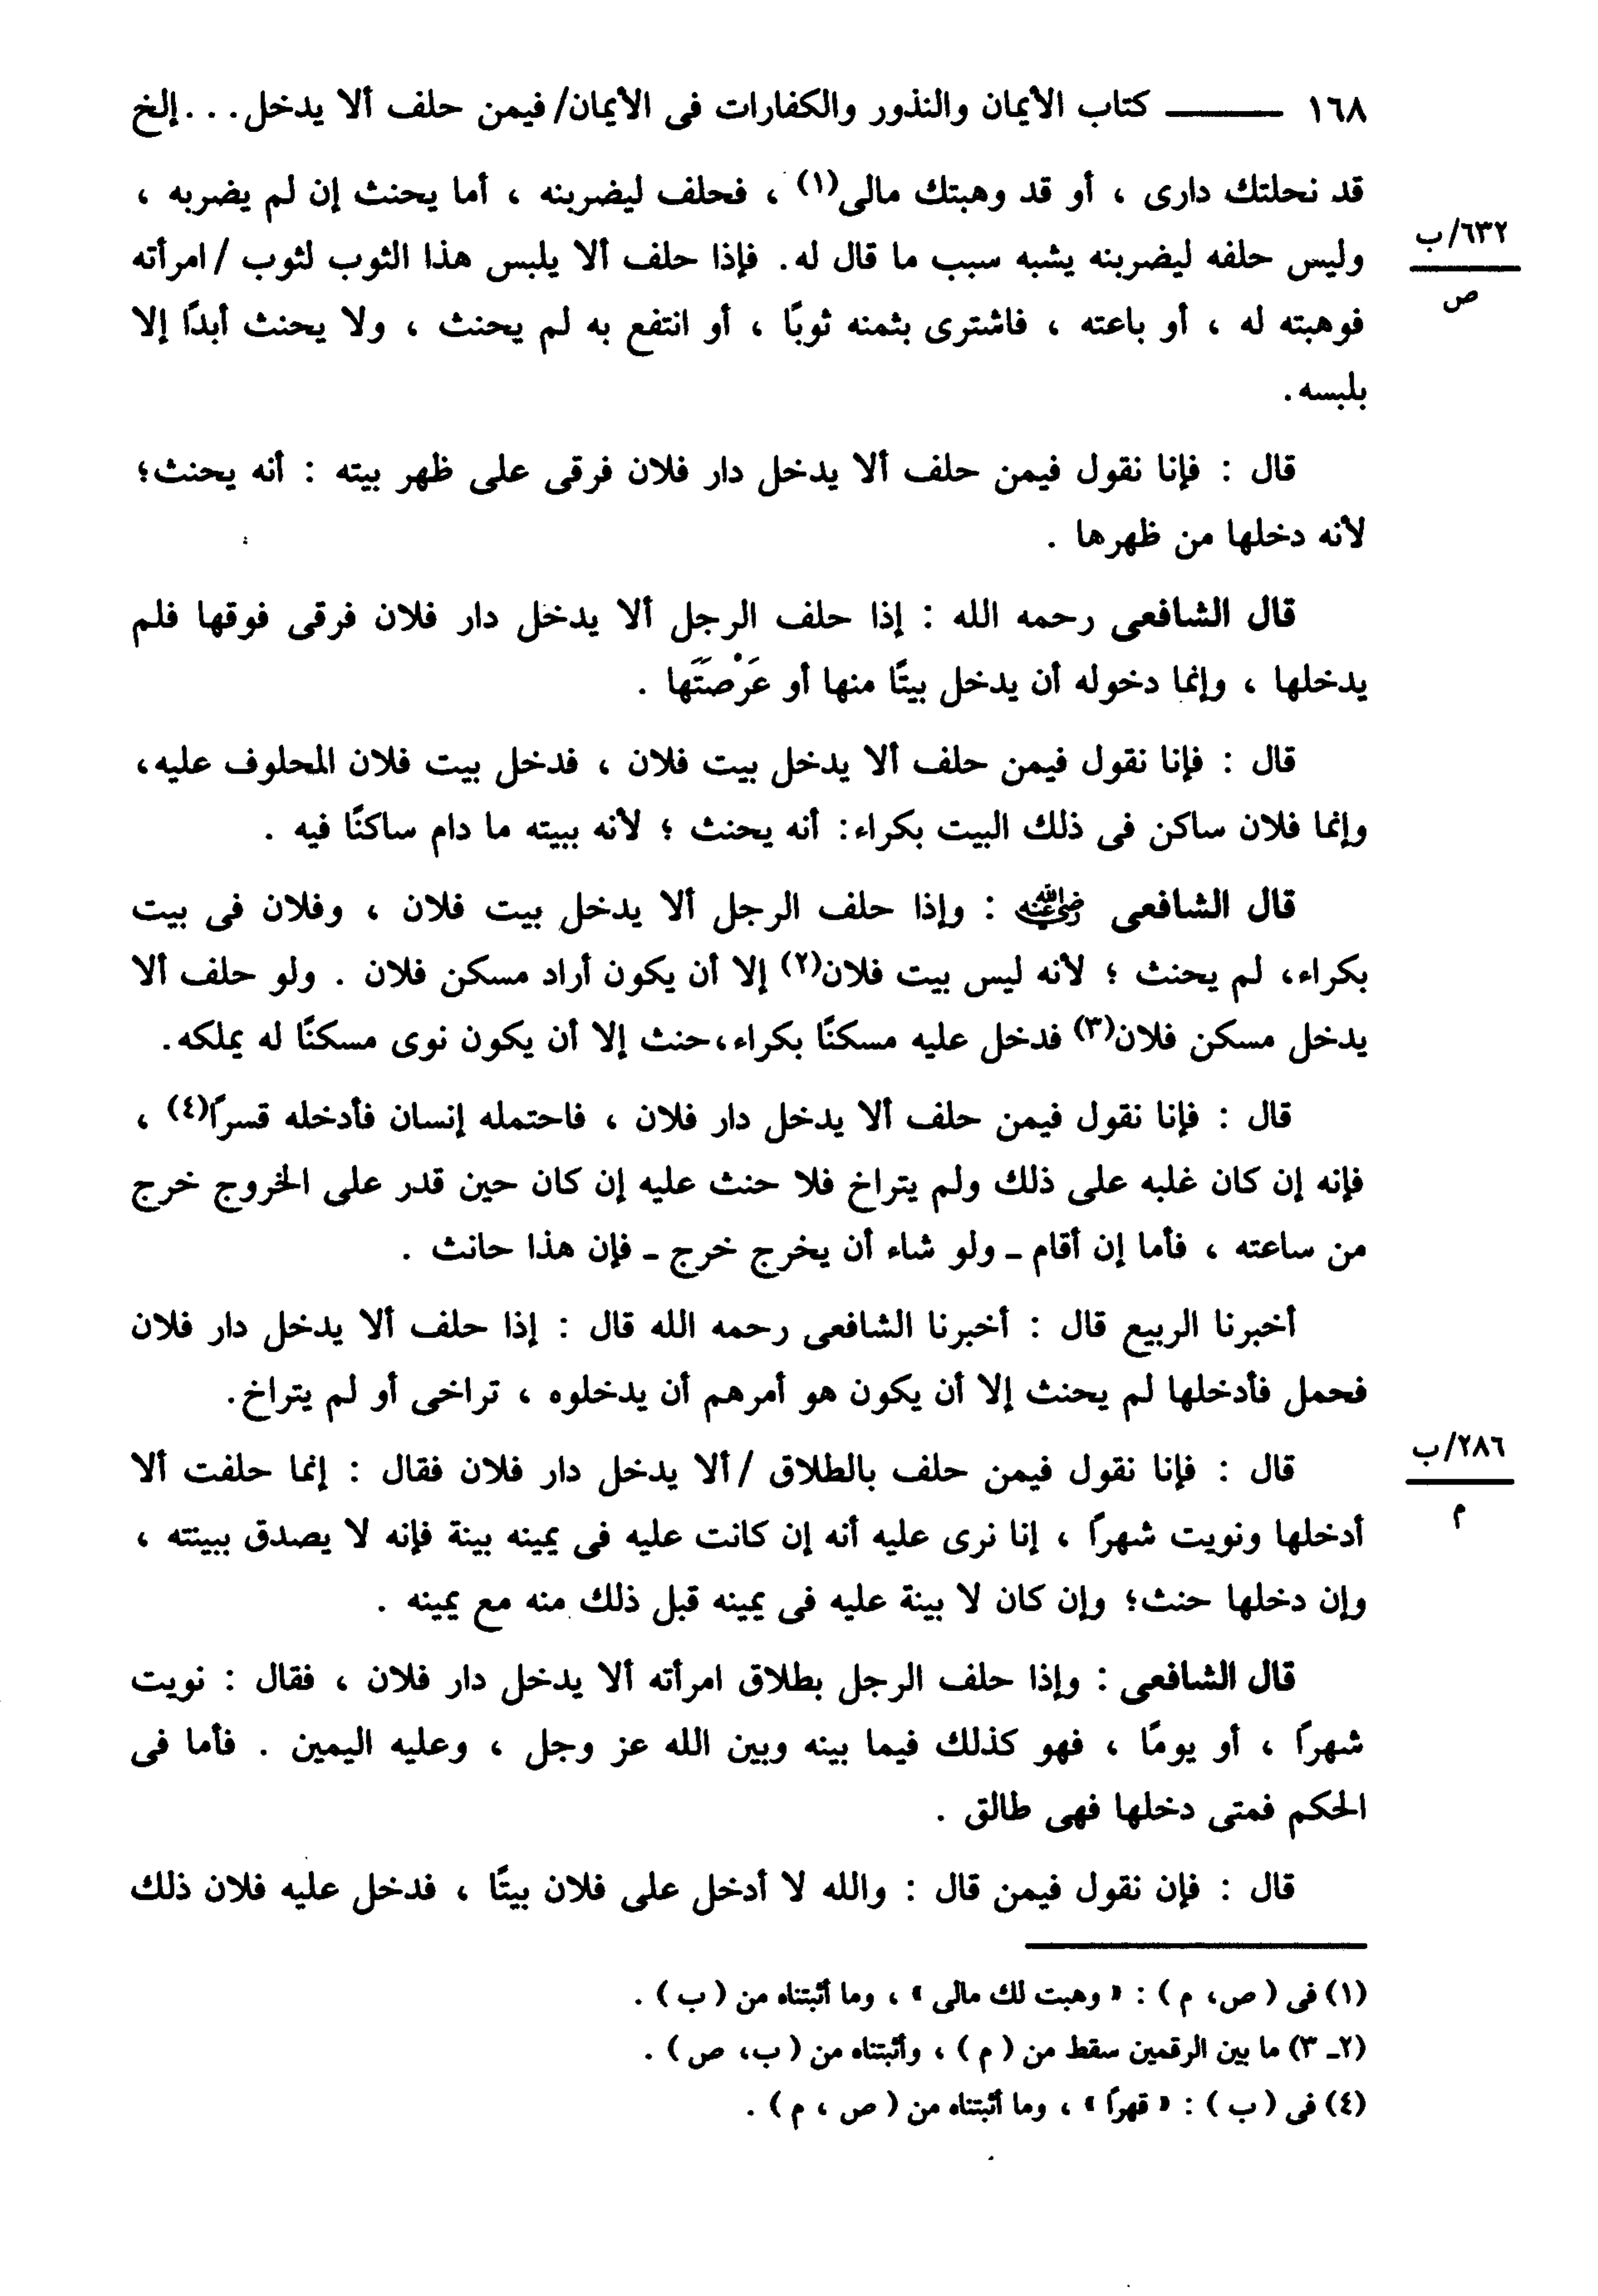 ١٦٨ ــــــــ كتاب الأيمان والنذور والكفارات فى الأيمان/ فيمن حلف ألا يدخل . . . إلخ
قد نحلتك دارى ، أو قد وهبتك مالى(١) ، فحلف ليضربنه ، أما يحنث إن لم يضربه ،
٦٣٢/ب
ص
وليس حلفه ليضربنه يشبه سبب ما قال له . فإذا حلف ألا يلبس هذا الثوب لثوب / امرأته
فوهبته له ، أو باعته ، فاشترى بثمنه ثوبًا ، أو انتفع به لم يحنث ، ولا يحنث أبدًا إلا
بلبسه .
قال : فإنا نقول فيمن حلف ألا يدخل دار فلان فرقى على ظهر بيته : أنه يحنث؛
لأنه دخلها من ظهرها .
قال الشافعى رحمه الله : إذا حلف الرجل ألا يدخل دار فلان فرقى فوقها فلم
يدخلها ، وإنما دخوله أن يدخل بيتًا منها أو عَرْصَتَها .
قال : فإنا نقول فيمن حلف ألا يدخل بيت فلان ، فدخل بيت فلان المحلوف عليه،
وإنما فلان ساكن فى ذلك البيت بكراء: أنه يحنث ؛ لأنه ببيته ما دام ساكنًا فيه .
قال الشافعى رضي الله عنه : وإذا حلف الرجل ألا يدخل بيت فلان ، وفلان فى بيت
بكراء، لم يحنث ؛ لأنه ليس بيت فلان(٢) إلا أن يكون أراد مسكن فلان . ولو حلف ألا
يدخل مسكن فلان(٣) فدخل عليه مسكنًا بكراء،حنث إلا أن يكون نوى مسكنًا له يملكه.
قال : فإنا نقول فيمن حلف ألا يدخل دار فلان ، فاحتمله إنسان فأدخله قسرًا(٤) ،
فإنه إن كان غلبه على ذلك ولم يتراخ فلا حنث عليه إن كان حين قدر على الخروج خرج
من ساعته ، فأما إن أقام ـ ولو شاء أن يخرج خرج ـ فإن هذا حانث .
أخبرنا الربيع قال : أخبرنا الشافعى رحمه الله قال : إذا حلف ألا يدخل دار فلان
فحمل فأدخلها لم يحنث إلا أن يكون هو أمرهم أن يدخلوه ، تراخى أو لم يتراخ.
٢٨٦/ب
م
قال : فإنا نقول فيمن حلف بالطلاق / ألا يدخل دار فلان فقال : إنما حلفت ألا
أدخلها ونويت شهرًا ، إنا نرى عليه أنه إن كانت عليه فى يمينه بينة فإنه لا يصدق ببينته ،
وإن دخلها حنث؛ وإن كان لا بينة عليه فى يمينه قبل ذلك منه مع يمينه .
قال الشافعى : وإذا حلف الرجل بطلاق امرأته ألا يدخل دار فلان ، فقال : نويت
شهرًا ، أو يومًا ، فهو كذلك فيما بينه وبين الله عز وجل ، وعليه اليمين . فأما فى
الحكم فمتى دخلها فهى طالق .
قال : فإن نقول فيمن قال : والله لا أدخل على فلان بيتًا ، فدخل عليه فلان ذلك
(١) فى ( ص، م ) : « وهبت لك مالى » ، وما أثبتناه من ( ب ) .
(٢ـ ٣) ما بين الرقمين سقط من ( م ) ، وأثبتناه من ( ب، ص ) .
(٤) فى ( ب ) : « قهرًا » ، وما أثبتناه من ( ص ، م ) .